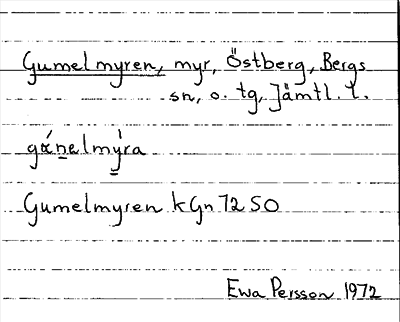 Gumelmyren, myr, Östberg, Bergs
sn, o. tg, Jämtl. l.
gάn̲almý̲ra
Gumelmyren kGn 72 SO
Ewa Persson 1972